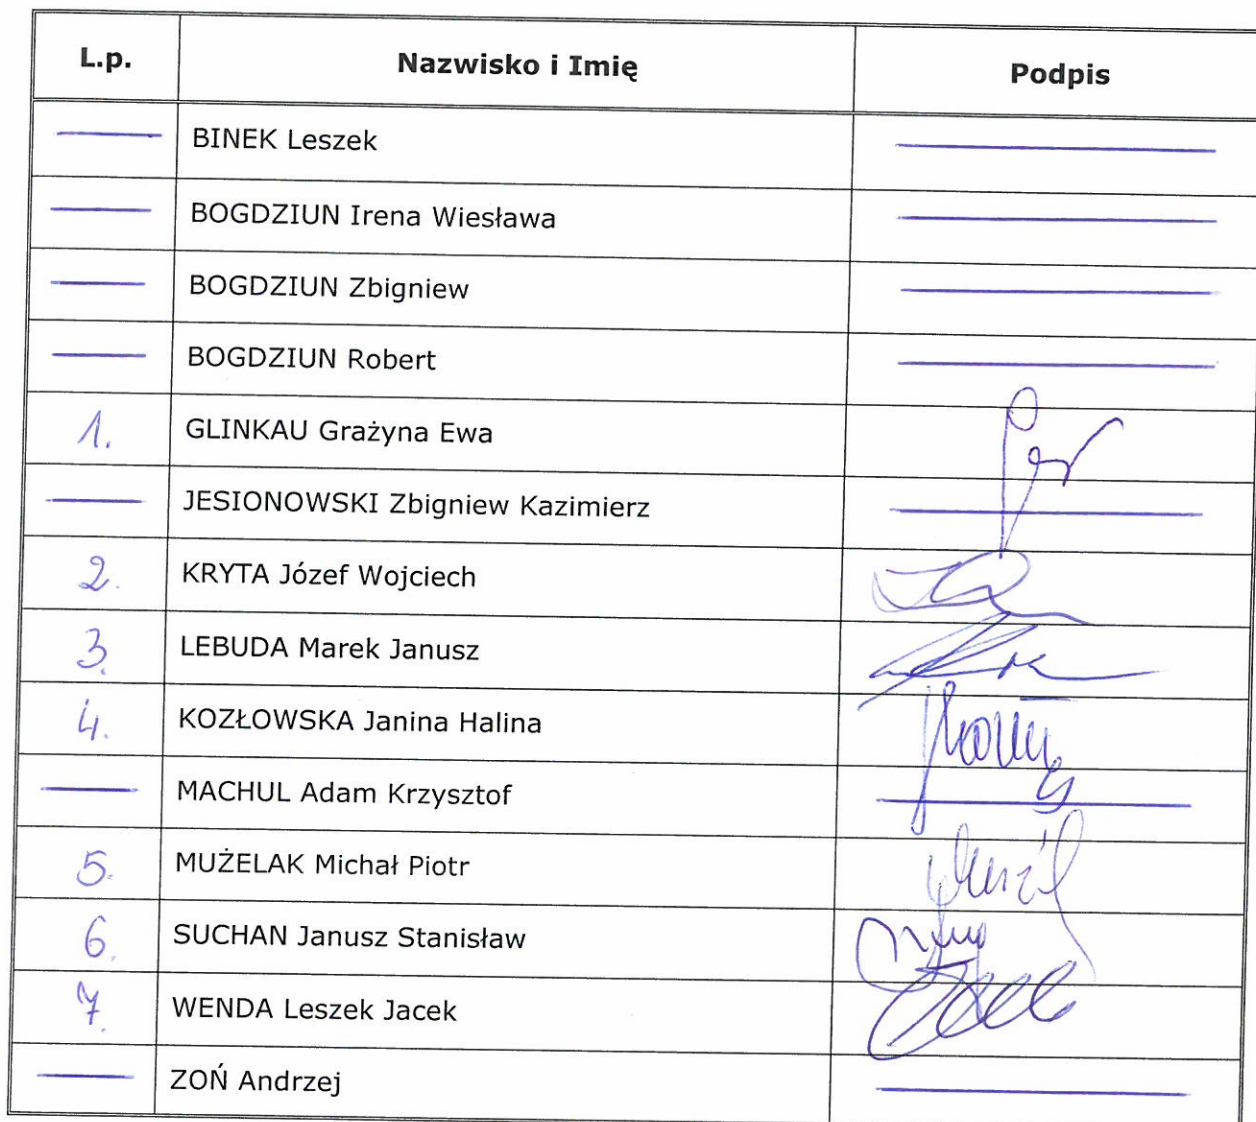 L.p. Nazwisko i Imię Podpis
BINEK Leszek
BOGDZIUN Irena Wiesława
BOGDZIUN Zbigniew
BOGDZIUN Robert
1. GLINKAU Grażyna Ewa
JESIONOWSKI Zbigniew Kazimierz
2. KRYTA Józef Wojciech
3. LEBUDA Marek Janusz
4. KOZŁOWSKA Janina Halina
MACHUL Adam Krzysztof
5. MUŻELAK Michał Piotr
6. SUCHAN Janusz Stanisław
7. WENDA Leszek Jacek
ZOŃ Andrzej